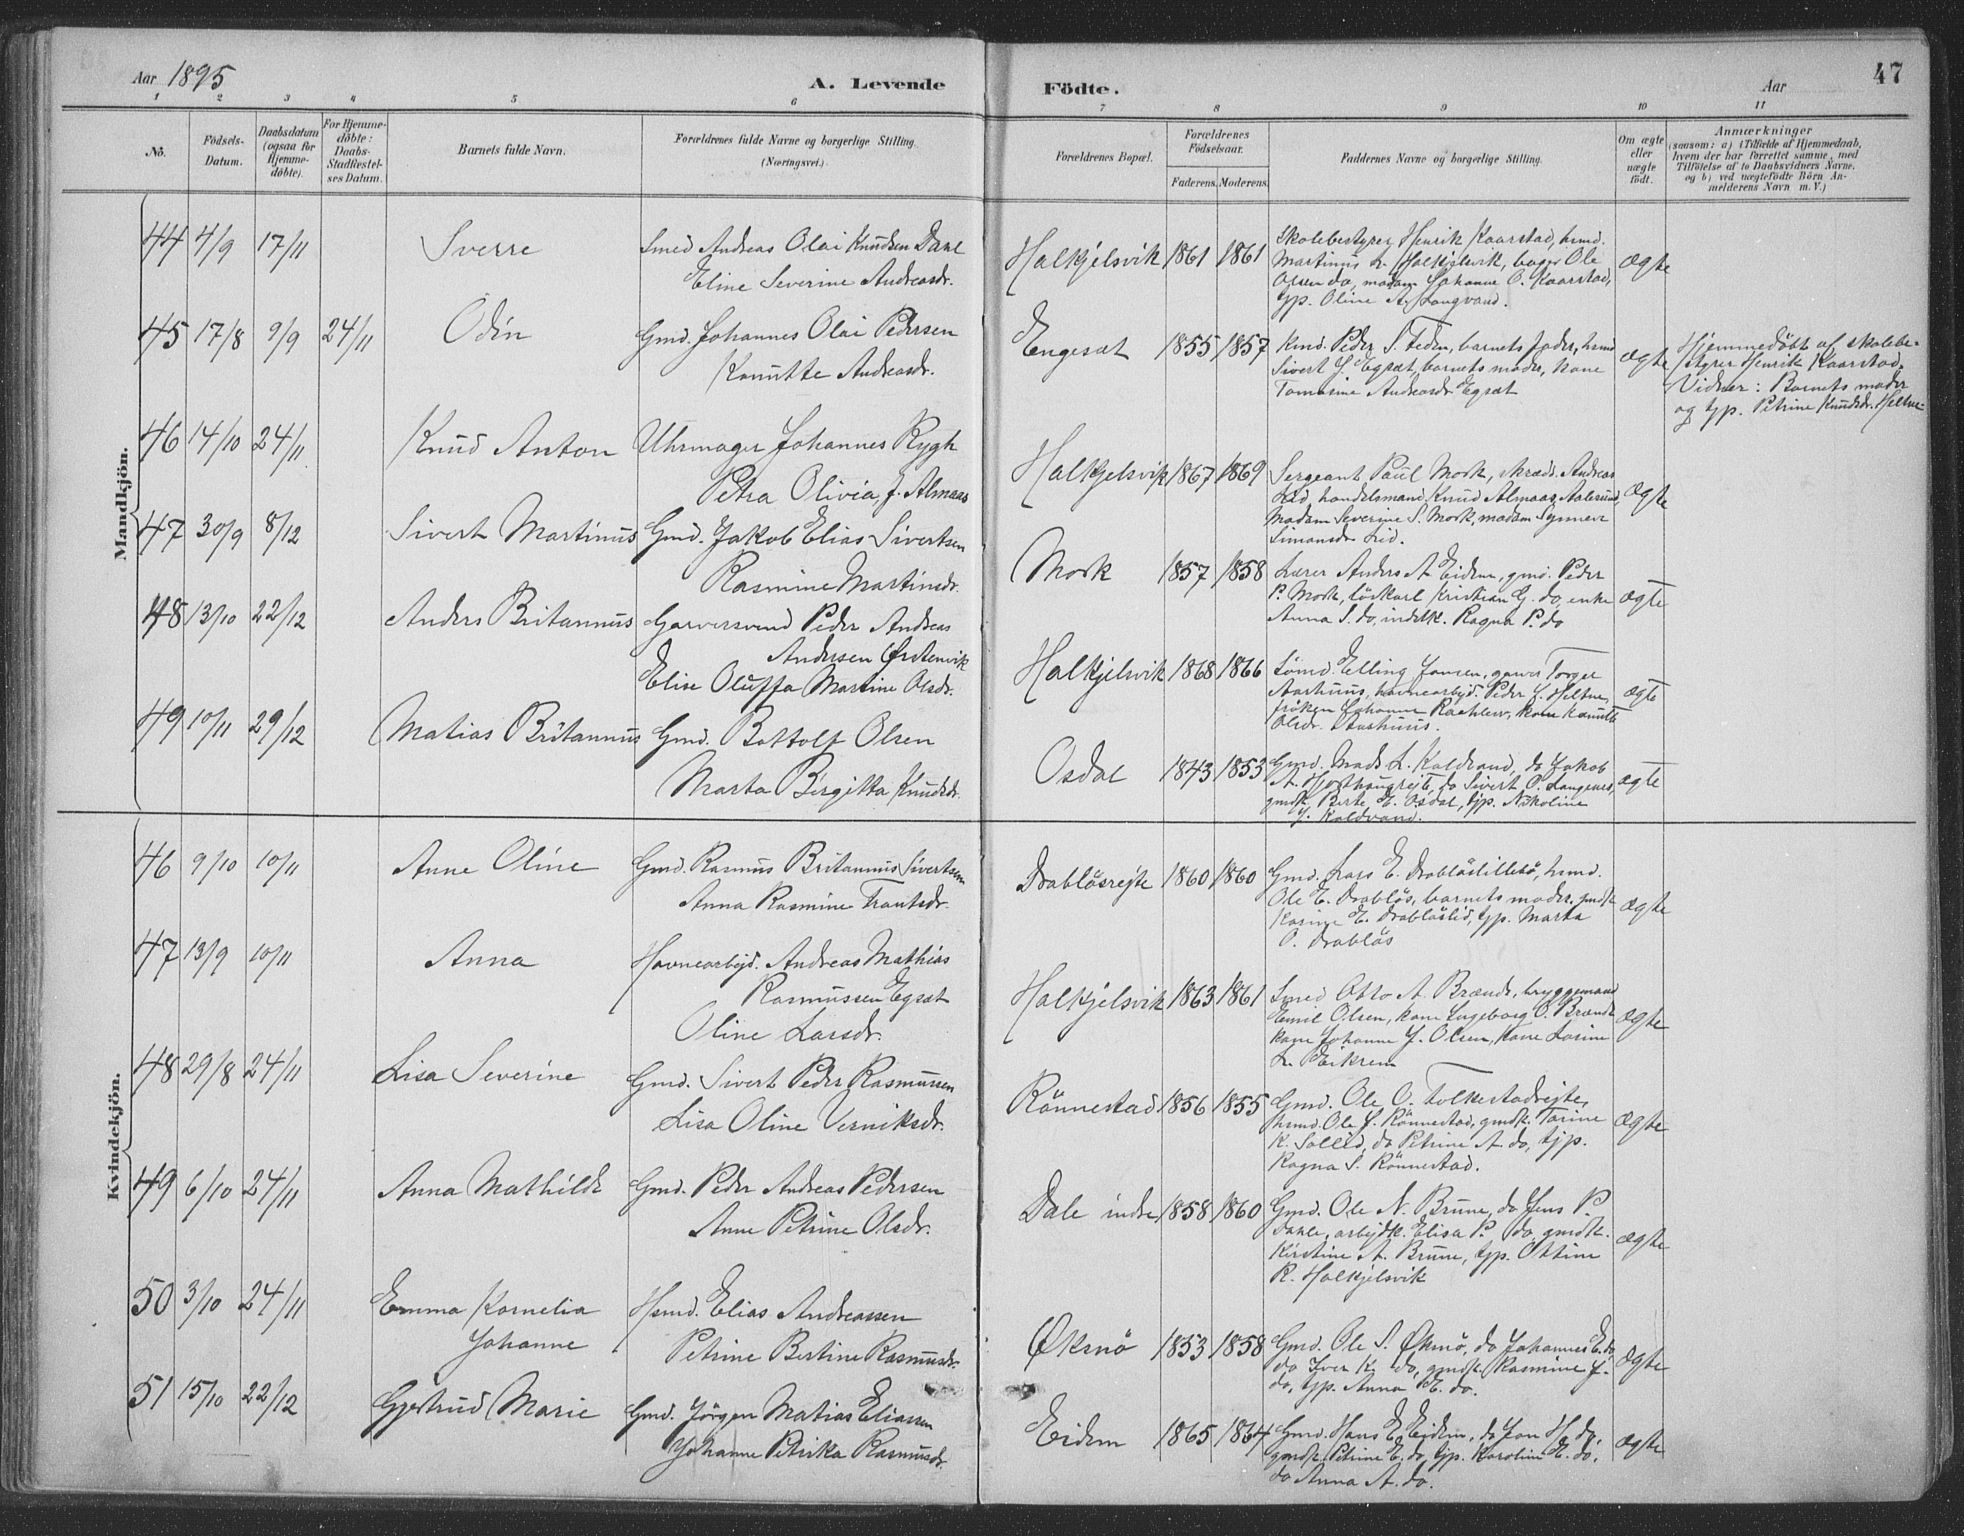 Aar 1895
A. Levende
Födte.
Aar
47
1 2 3 4 5 6 7 8 9 10 11
No.
Födsels-
Datum.
Daabsdatum
(ogsaa for
Hjemme-
döbte).
For Hjemme-
döbte:
Daabs-
Stadfæstel-
ses Datum.
Barnets fulde Navn.
Forældrenes fulde Navne og borgerlige Stilling
(Næringsvei.)
Forældrenes Bopæl.
Forældrenes
Födselsaar.
Faderens. Moderens.
Faddernes Navne og borgerlige Stilling.
Om ægte
eller
uægte
födt.
Anmærkninger
(saasom: a) i Tilfælde af Hjemmedaab,
hvem der har forrettet samme, med
Tilföielse af to Daabsvidners Navne,
og b) ved uægtefödte Börn An-
melderens Navn m. V.)
Mandkjön.
44 4/9 17/11 Sverre
Smed Andreas Olai Knudsen Dahl
Eline Severine Andreasdr.
Halkjelsvik 1861 1861
Skolebestyrer Henrik Kaarstad, husmd.
Martinus L. Halkjelsvik, bager Ole
Olsen do, madam Johanne O. Kaarstad,
tjp. Oline A. Langvand.
Ægte
45 17/8 9/9 24/11 Odin
Gmd. Johannes Olai Pedersen
Knutte Andreasdr.
Engeset 1855 1857
Kmd. Peder T. Feden, barnets fader,
Sivert S. Egsæt, barnets moder, kone
Tomasine Andreasdr Egsæt
ægte
Hjemmedöbt af skolebe-
styrer Henrik Kaarstad.
Vidner: Barnets moder
og tjp. Petrine Knudsdr. Heltne
46 14/10 24/11 Knud Anton
Uhrmager Johannes Rygh
Petra Olivia, f. Almaas
Halkjelsvik 1867 1869
Sergeant Paul Mork, skræd. Andreas
Lid handelsmand Knud Almaas, Aalesund,
Madam Severine S. Mork, madam Synneve
Simonsdr Lid.
Ægte
47 30/9 8/12 Sivert Martinus
Gmd. Jakob Elias Sivertsen
Rasmine Martinsdr.
Mork 1857 1858
Lærer Anders A. Eidem, gmd. Peder
P. Mork, löskarl Kristian G. do, enke
Anna S. do, indstk. Ragna P. do
ægte
48 13/10 22/12 Anders Britannus
Garversvend Peder Andreas
Andersen Ørstenvik
Elise Oluffa Martine Olsdr.
Halkjelsvik 1868 1866
Sömd. Elling Jansen, garver Torger
Aarhuus, havnearbjd. Peder L. Heltne,
fröken Johanne Raehlew, kone Knutte
Olsdr. Aarhuus.
ægte
49 10/11 29/12 Matias Britannus
Gmd. Bottolf Olsen
Marta Birgitta Knudsdr.
Osdal 1843 1853
Gmd. Mads L. Kaldvand, do Jakob
A. Hjorthaugrejte, do Sivert O. Langenes,
gmdk. Berte E. Osdal, tjp. Nikoline
J. Kaldvand.
ægte
Kvindekjön.
46 9/10 10/11 Anne Oline
Gmd. Rasmus Britannus Sivertsen
Anna Rasmine Trautsdr.
Drablösrejte 1860 1860
Gmd. Lars E. Drabløslillebö, husmd.
Ole E. Drablös, barnets moder, gmdk
Karine E. Drabløslid, tjp. Marta
O. Drablös
ægte
47 13/9 10/11 Anna
Havnearbjd. Andreas Mathias
Rasmussen Egsæt
Oline Larsdr.
Halkjelsvik 1863 1861
Smed Otto A. Brænde, bryggemand
Emil Olsen, kone Ingeborg O. Brænde
kone Johanne J. Olsen, kone Larine
L. Eikrem
ægte
48 29/8 24/11 Lisa Severine
Gmd. Sivert Peder Rasmussen
Lisa Oline Verniksdr.
Rönnestad 1856 1855
Gmd. Ole O. Folkestadrejte,
husmd. Ole J. Rönnestad, gmdk. Tarine
K. Sollid, do Petrine A. do, tjp.
Ragna S. Rönnestad.
Ægte
49 6/10 24/11 Anna Mathilde
Gmd. Peder Andreas Pedersen
Anne Petrine Olsdr.
Dale indre 1858 1860
Gmd. Ole N. Brune, do Jens P.
Dahle, arbejdk. Elisa P. do, gmdk.
Kirstine A. Brune, tjp. Ottine
R. Halkjelsvik
ægte
50 3/10 24/11 Emma Kornelia
Johanne
Hsmd. Elias Andreassen
Petrine Bertine Rasmusdr.
Øksnö 1853 1858
Gmd. Ole S. Øksnö, do Johannes E. do
do Iver K. do, gmdk. Rasmine J.
do, tjp. Anna E. do.
Ægte
51 15/10 22/12 Gjertrud Marie
Gmd. Jörgen Matias Eliassen
Johanne Petrika Rasmusdr.
Eidem 1865 1864
Gmd. Hans E. Eidem, do Jon H. do,
gmdk. Petrine E. do, tjp. Karoline E. do,
do Anna A. do.
Ægte